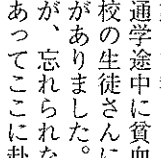 通学途中に貧血
校の生徒さんに
がありました。
が、忘れられな
あってここに赴